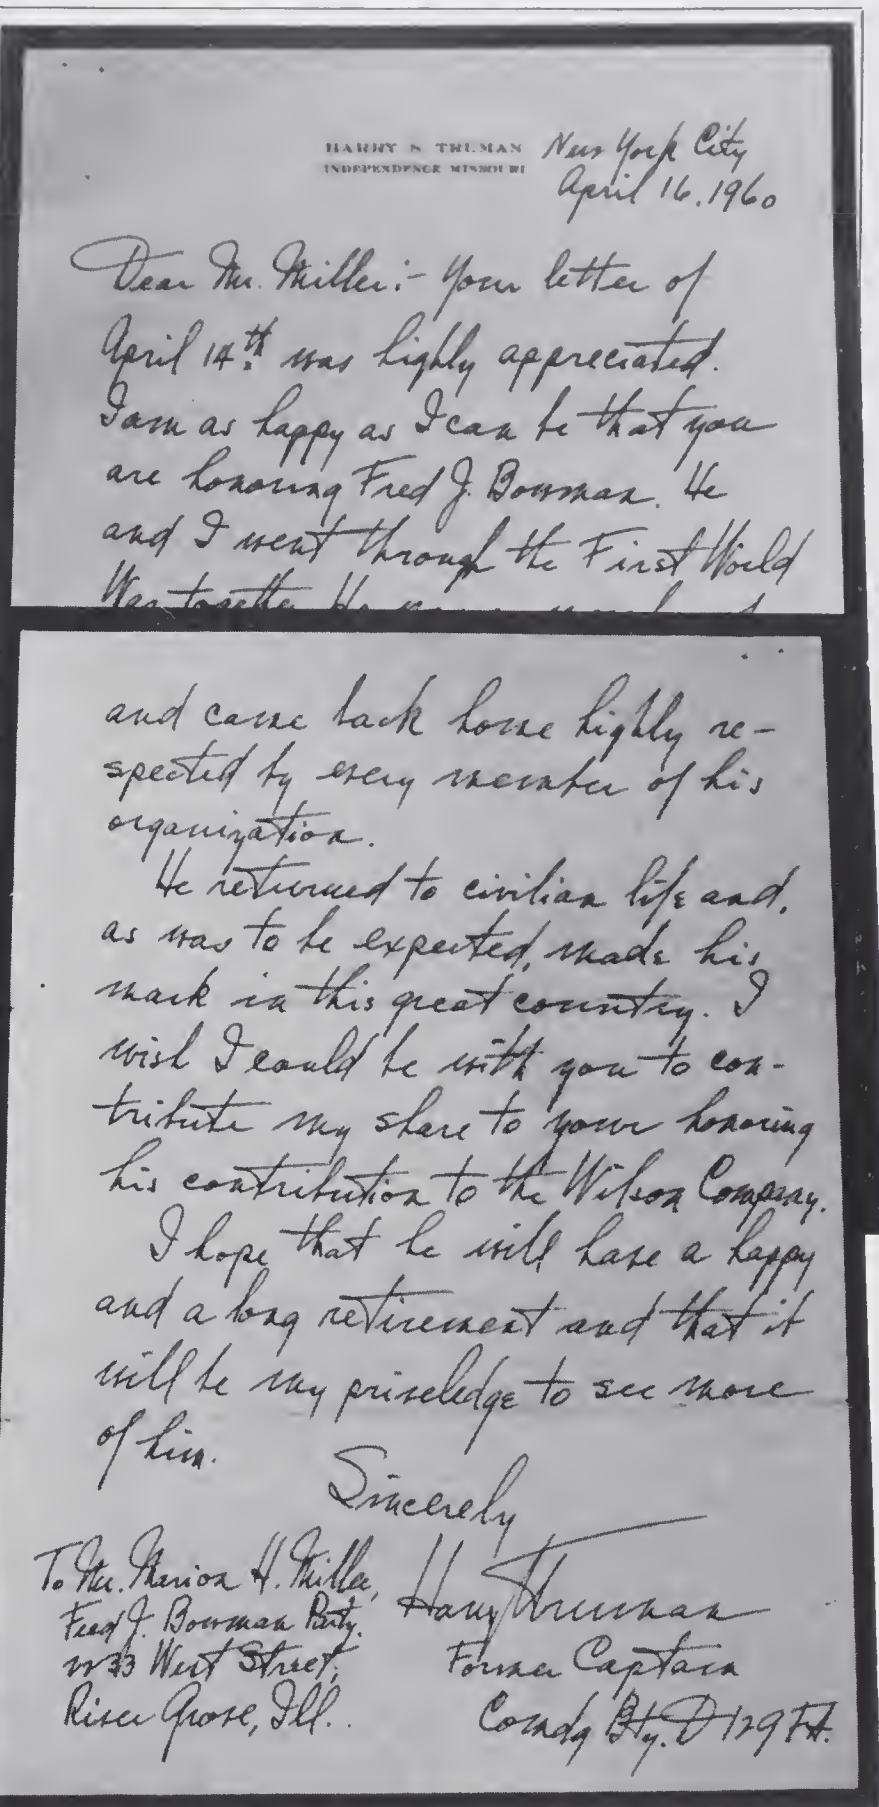 HARRY S. TRUMAN
INDEPENDENCE MISSOURI
New York City
April 16, 1960
Dear Mr. Miller:- Your letter of
April 14th was highly appreciated.
I am as happy as I can be that you
are honoring Fred J. Bowman. He
and I went through the First World
War together. He
and came back home highly re-
spected by every member of his
organization.
He returned to civilian life and,
as was to be expected, made his
mark in this great country. I
wish I could be with you to con-
tribute my share to your honoring
his contribution to the Wilson Company.
I hope that he will have a happy
and a long retirement and that it
will be my priveledge to see more
of him.
Sincerely
Harry Truman
Former Captain
Comdg Bty. D 129 F.A.
To Mr. Marion H. Miller,
Fred J. Bowman Party.
2233 West Street,
River Grove, Ill.